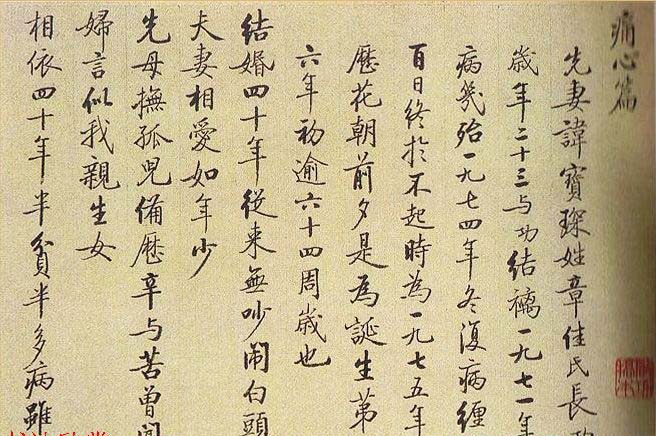 痛心篇
先妻諱寶琛姓章佳氏長功
歲年二十三与功結褵一九七一年
病幾殆一九七四年冬復病纏
百日終於不起時為一九七五年
曆花朝前夕是為誕生第
六年初逾六十四周歲也
結婚四十年從來無吵鬧白頭
夫妻相愛如年少
先母撫孤兒備歷辛与苦曾聞
婦言似我親生女
相依四十年半貧半多病雖